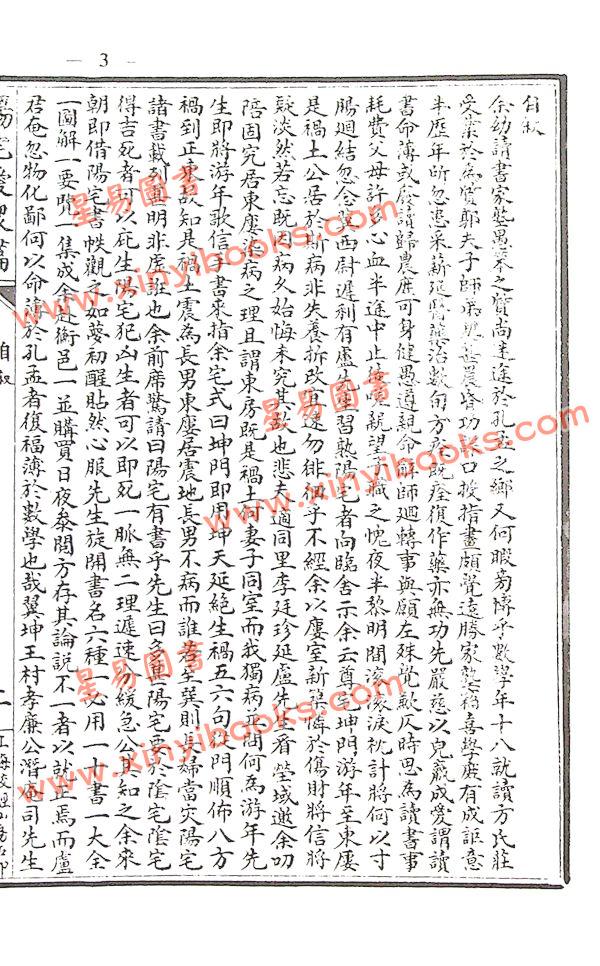 — 3 —
自叙
余幼讀書家塾愚笨之質尚迷途於孔孟之鄉又何暇旁博乎數學年十八就讀方氏莊
受業於為質郭夫子師弟晨昏功課口授指畫頗覺遠勝家塾稿喜學庶有成詎意
半歷年所忽患采薪延醫藥治數旬方痊既痊復作藥亦無功先嚴慈以兒羸成愛謂讀
書命薄或廢讀歸農庶可身健愚遵親命解師迴轉事與願左殊覺歉仄時思為讀書事
耗費父母許多心血半途中止緩負親望子職之愧夜半黎明間滾滾淚枕計將何以寸
腸迴結忽念莫西尉遲利有盧先生習熟陽宅者向臨舍示余云尊宅坤門游年至東廈
是禍土公居於斯病非失養拆改宜速勿徘徊乎不經余以廈室新築憐於傷財將信將
疑淡然若忘既因病久始悔未究其數也悲夫適同里李廷珍延盧先生看塋域邀余叨
陪固究居東廈染病之理且謂東房既是禍土何妻子同室而我獨病再問何為游年先
生即將游年歌信手書來指余宅式曰坤門即用坤天延絕生禍五六句從門順佈八方
禍到正東故知是禍土震為長男東廈居震地長男不病而誰若至巽則長婦當災陽宅
諸書載列真明非虛誑也余前席驚請曰陽宅有書乎先生曰多真陽宅要於陰宅陰宅
得吉死者可以庇生陽宅犯凶生者可以即死一脈無二理遲速分緩急公其知之余來
朝即借陽宅書帙觀之如夢初醒貼然心服先生旋開書名六種一必用一十書一大全
一圖解一要覽一集成余赴衡邑一並購買日夜參閱方存其論說不一者以就正焉而盧
君奄忽物化鄙何以命薄於孔孟者復福薄於數學也哉翼坤王村孝廉公潛菴司先生
自叙
二
星易圖書
www.xinyibooks.com
星易圖書
www.xinyibooks.com
星易圖書
www.xinyibooks.com